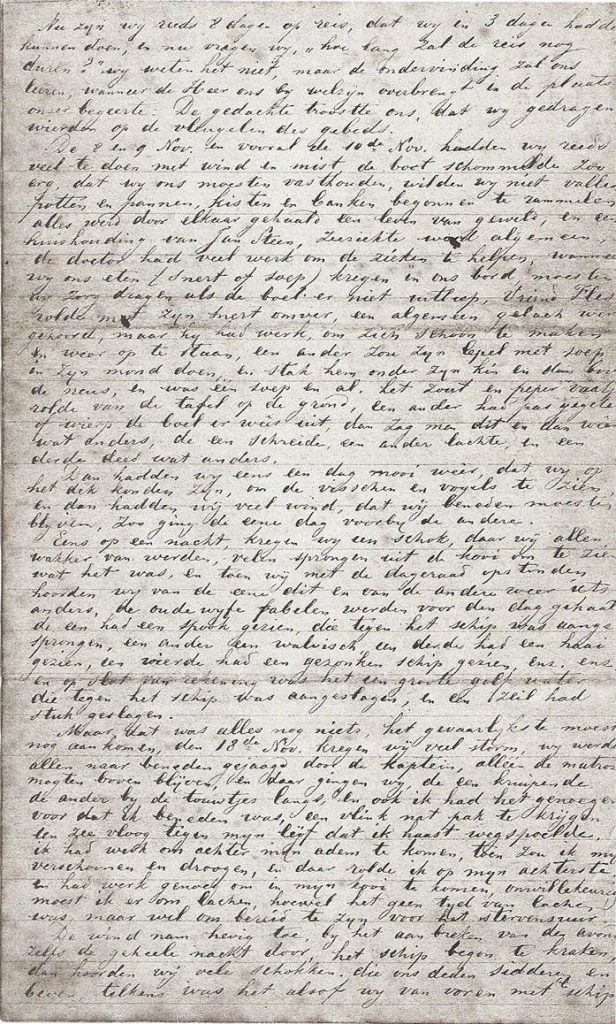 Nu zyn wy reeds 8 dagen op reis, dat wy in 3 dagen hadde
kunnen doen, en nu vragen wy, "hoe lang zal de reis nog
duren?" wy weten het niet, maar de ondervinding zal ons
leeren, wanneer de Heer ons by welzyn overbrengt in de plaats
onzer begeerte. De gedachte troostte ons, dat wy gedragen
wierden op de vleugelen des gebeds.
De 8 en 9 Nov. en vooral de 10de Nov. hadden wy reeds
veel te doen met wind en mist de boot schommelde zoo
erg, dat wy ons moesten vasthouden, wilden wy niet valle
potten en pannen, kisten en banken begonnen te rammelen
alles werd door elkaar gehaald een leven van geweld, en een
huishouding van Jan Steen, Zeeziekte werd algemeen,
de doctor had veel werk om de zieken te helpen, wanneer
wy ons eten (Snert of soep) kregen in ons bord moesten
wy zorg dragen als de boel er niet uitliep, Vriend
rolde met zyn snert omver, een algemeen gelach we
gehoord, maar hy had werk, om zich schoon te maken
en weer op te staan, een ander zou zyn lepel met soep
in zyn mond doen, en stak hem onder zyn kin en dan bov
de neus, en was een soep en al. het zout en peper vaa
rolde van de tafel op de grond, een ander had pas gegete
of wierp de boel er weer uit, dan zag men dit en dan weer
wat anders, de een schreide, een ander lachte en een
derde deed wat anders.
Dan hadden wy eens een dag mooi weer, dat wy op
het dek konden zyn, om de visschen en vogels te zien
en dan hadden wy veel wind, dat wy beneden moesten
blyven, Zoo ging de eene dag voorby de andere.
Eens op een nacht, kregen wy een schok, daar wy allen
wakker van werden, velen sprongen uit de kooi om te zien
wat het was, en toen wy met de dageraad opstonden
hoorden wy van de eene dit en van de andere weer iets
anders, de oude wyfe fabelen werden voor den dag gehaal
de een had een spook gezien, die tegen het schip was aange
sprongen, een ander een walvisch een derde had een haai
gezien, een vierde had een gezonken schip gezien, enz. enz.
en op slot van rekening was het een groote golf water
die tegen het schip was aangeslagen, en een zeil had
stuk geslagen.
Maar, dat was alles nog niets, het gevaarlykste moest
nog aankomen, den 18de Nov. kregen wy veel storm, wy werde
allen naar beneden gejaagd door de kaptein, alleen de matroz
magten boven blyven, en daar gingen wy de een kruipende
de ander by de touwtjes langs, en ook ik had het genoegen
voor dat ik beneden was, een flink nat pak te krygen
een zee vloog tegen myn lyf dat ik haast wegspoelde.
ik had werk om achter myn adem te komen, toen zou ik my
verschoonen en droogen, en daar rolde ik op myn achterste
en had werk genoeg om in myn kooi te komen, onwillekeurig
moest ik er om lachen, hoewel het geen tyd van lachen
was, maar wel om bereid te zyn voor het stervensuur.
De wind nam hevig toe, by het aanbreken van den avond
zelfs de geheele nacht door, het schip begon te kraken,
dan hoorden wy vele schokken, die ons deden sidderen en
beven telkens was het alsof wy van voren met 't schip